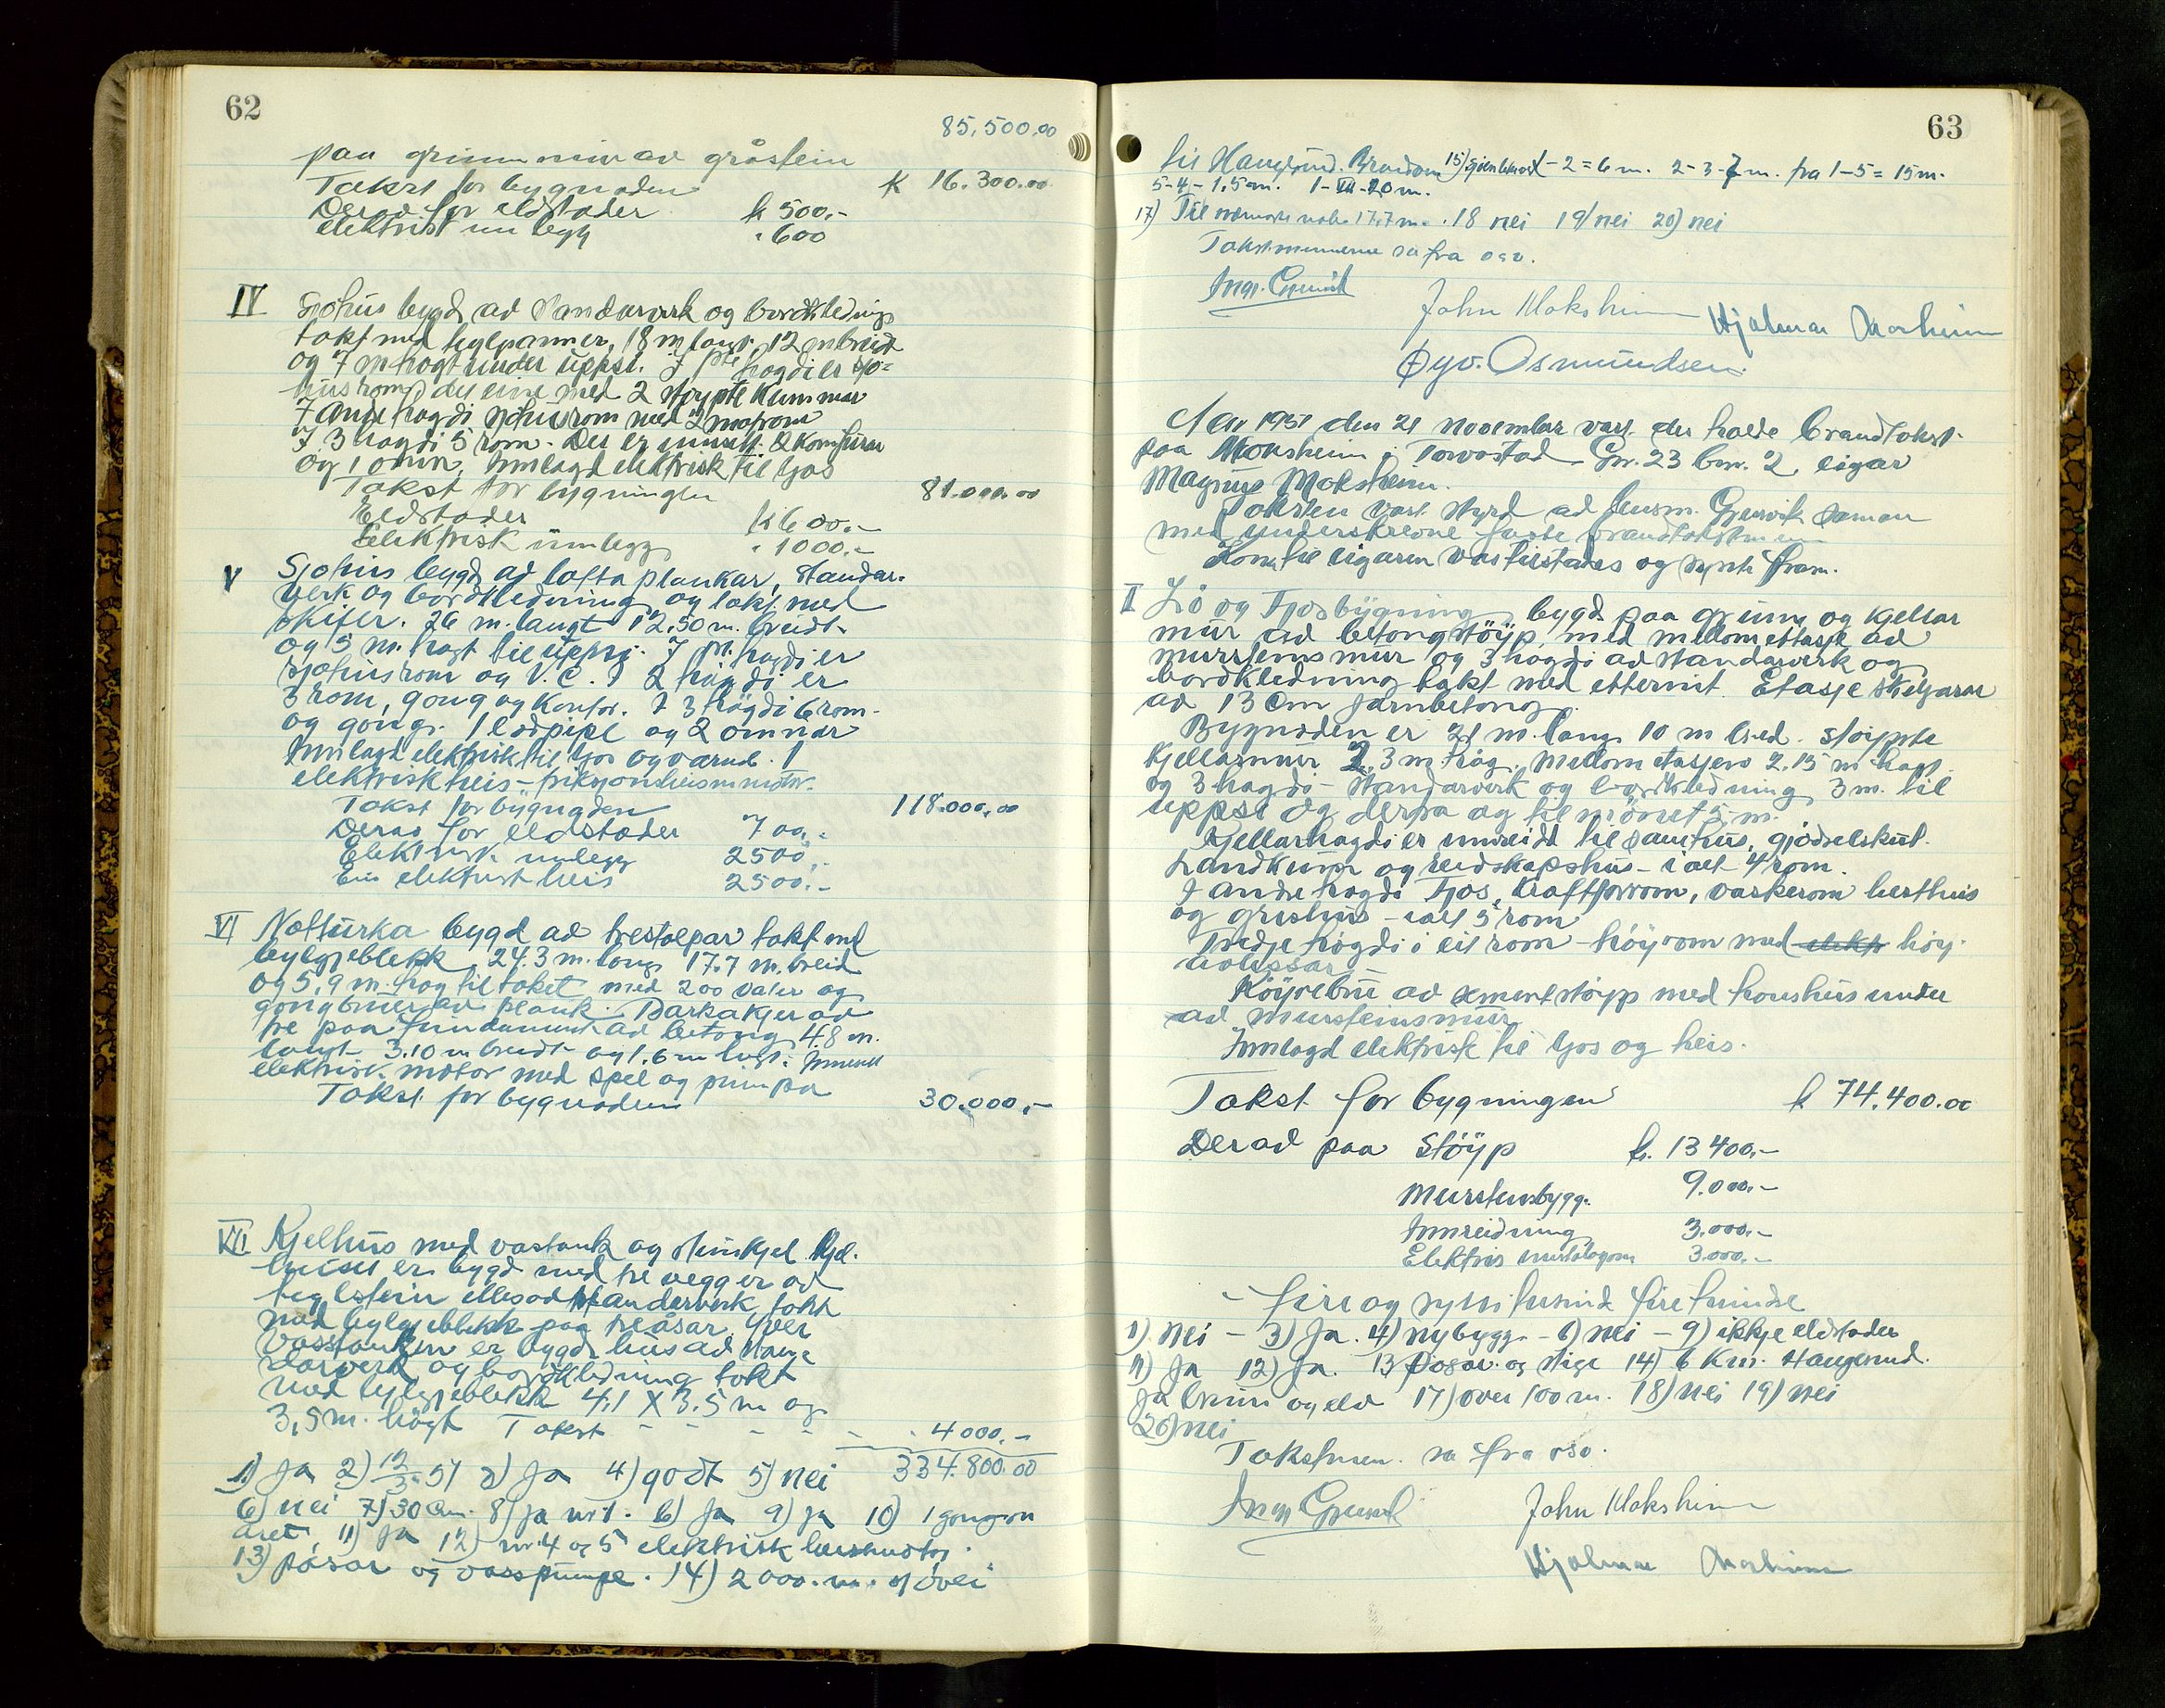 62
85.500.00
paa grunnmur av gråstein
Takst for bygnaden k 16.300.00
Derav for eldstader k 500.-
elektrisk innlegg " 600
IV Sjøhus bygd av standarverk og bordkledning
takt med teglpannor, 18 m langt 12 m breidt
og 7 m høgt under uppsi. I 1ste høgdi er sjø-
husrom, det eine med 2 støypte kummar
I andre høgdi sjøhusrom med 2 matrom
I 3 høgdi 5 rom. Det er innsett 2 komfurar
og 1 omn, innlagd elektrisk til ljos
Takst for bygningen 81.000.00
Eldstader k 600.-
Elektrisk innlegg " 1000.-
V Sjøhus bygd ad lafta plankar, standar-
verk og bordkledning og takt med
skifer. 26 m. langt 12,50 m. breidt
og 5 m. høgt til uppsi. I 1st. høgdi er
sjøhusrom og V.C. I 2 høgdi er
3 rom, gong og komfor. I 3 høgdi 6 rom
og gong. 1 eldpipe og 2 omnar
Innlagd elektrisk til ljos og varme. 1
elektrisk heis - friksjonsheis m motor.
Takst for bygnaden 118.000.00
Derav for eldstader 700.-
Elektrisk innlegg 2500.-
Ein elektrisk heis 2500.-
VI Notturka bygd ad trestolpar takt med
bylgjeblekk 24.3 m. lang 17.7 m. breid
og 5,9 m. høg til taket med 200 valer og
gongbruer av plank. Barkakjer ad
tre paa fundament ad betong 4.8 m.
langt 3.10 m breidt og 1.6 m høgt. Innsett
elektrisk motor med spel og pumpa
Takst for bygnaden 30.000.-
VII Kjelhus med vasstank og steinkjel Kjel-
huset er bygd med tre vegger ad
teglstein ellers ad standarverk takt
med bylgjeblekk paa tre åsar. Over
vasstanken er bygd hus ad stand-
arverk og bordkledning takt
med bylgjeblekk 4,1 x 3,5 m og
3,5 m. høgt Takst - - - - - 4000.-
1) Ja 2) 12/3-51 3) Ja 4) godt 5) nei 334.800.00
6) nei 7) 30 cm. 8) ja nr 1. 6) Ja 9) ja 10) 1 gong om
året, 11) Ja 12) nr. 4 og 5 elektrisk heismotor
13) pøsar og vasspumpe. 14) 2000. m. og over
63
til Haugesund. Brandom 15) gjenbuar 1 - 2 = 6 m. 2-3-7 m. fra 1-5 = 15 m.
5-4- 1,5 m. 1-VII-20 m.
17) Til nærmaste nabo 17,7 m. . 18 nei 19) nei 20) nei
Takstmennerne sa fra osv.
Ingv. Gjervik
John Moksheim Hjalmar Norheim
Øyv. Osmundsen
Aar 1951 den 21 november vart der halde brandtakst
paa Moksheim i Torvastad Gn. 23 bnr. 2, eigar
Magnus Moksheim.
Taksten vart styrd ad lensm. Gjervik saman
med underskrevne faste brandtakstmenn
Kona til eigaren var tilstades og synte fram.
II Lø og Fjosbygning bygd paa grunn og kjellar
mur ad betong støyp, med mellometasje ad
murssteinsmur og 3 høgdi ad standarverk og
bordkledning takt med etternit. Etasjeskiljarar
ad 13 cm jarnbetong.
Bygnaden er 21 m. lang 10 m bred. støypte
kjellarmur 2.3 m høg, mellometasjens 2.15 m. høgt
og 3 høgdi - standarverk og bordkledning 3 m. til
uppsi og derpa og til mønet 5 m.
Kjellarhøgdi er innreidt til sauhus, gjødselskut.
landkum og reidskapshus - i alt 4 rom.
I andre høgdi Fjos, kraftforrom, vaskerom hesthus
og grishus - ialt 5 rom
Tredje høgdi i eit rom - høyrom med elektr høy-
avlessar
Køyrebru ad sementstøyp med honshus under
ad mursteinsmur
Innlagd elektrisk til ljos og heis.
Takst for bygningen k 74.400.00
Derad paa Støyp k. 13400.-
Mursteinsbygg. 9.000.-
Innreidning 3.000.-
Elektris installasjon 3.000.-
- fire og sytti tusind fire hundre
1) Nei - 3) Ja. 4) nybygg - 6) nei - 9) ikkje eldstader
11) Ja 12) Ja. 13 Pøsar og stige 14) 6 km. Haugesund.
Ja brunn og elv 17) over 100 m. 18) nei 19) nei
20) nei
Takstmen. sa fra oso.
Ingv Gjervik John Moksheim
Hjalmar Norheim